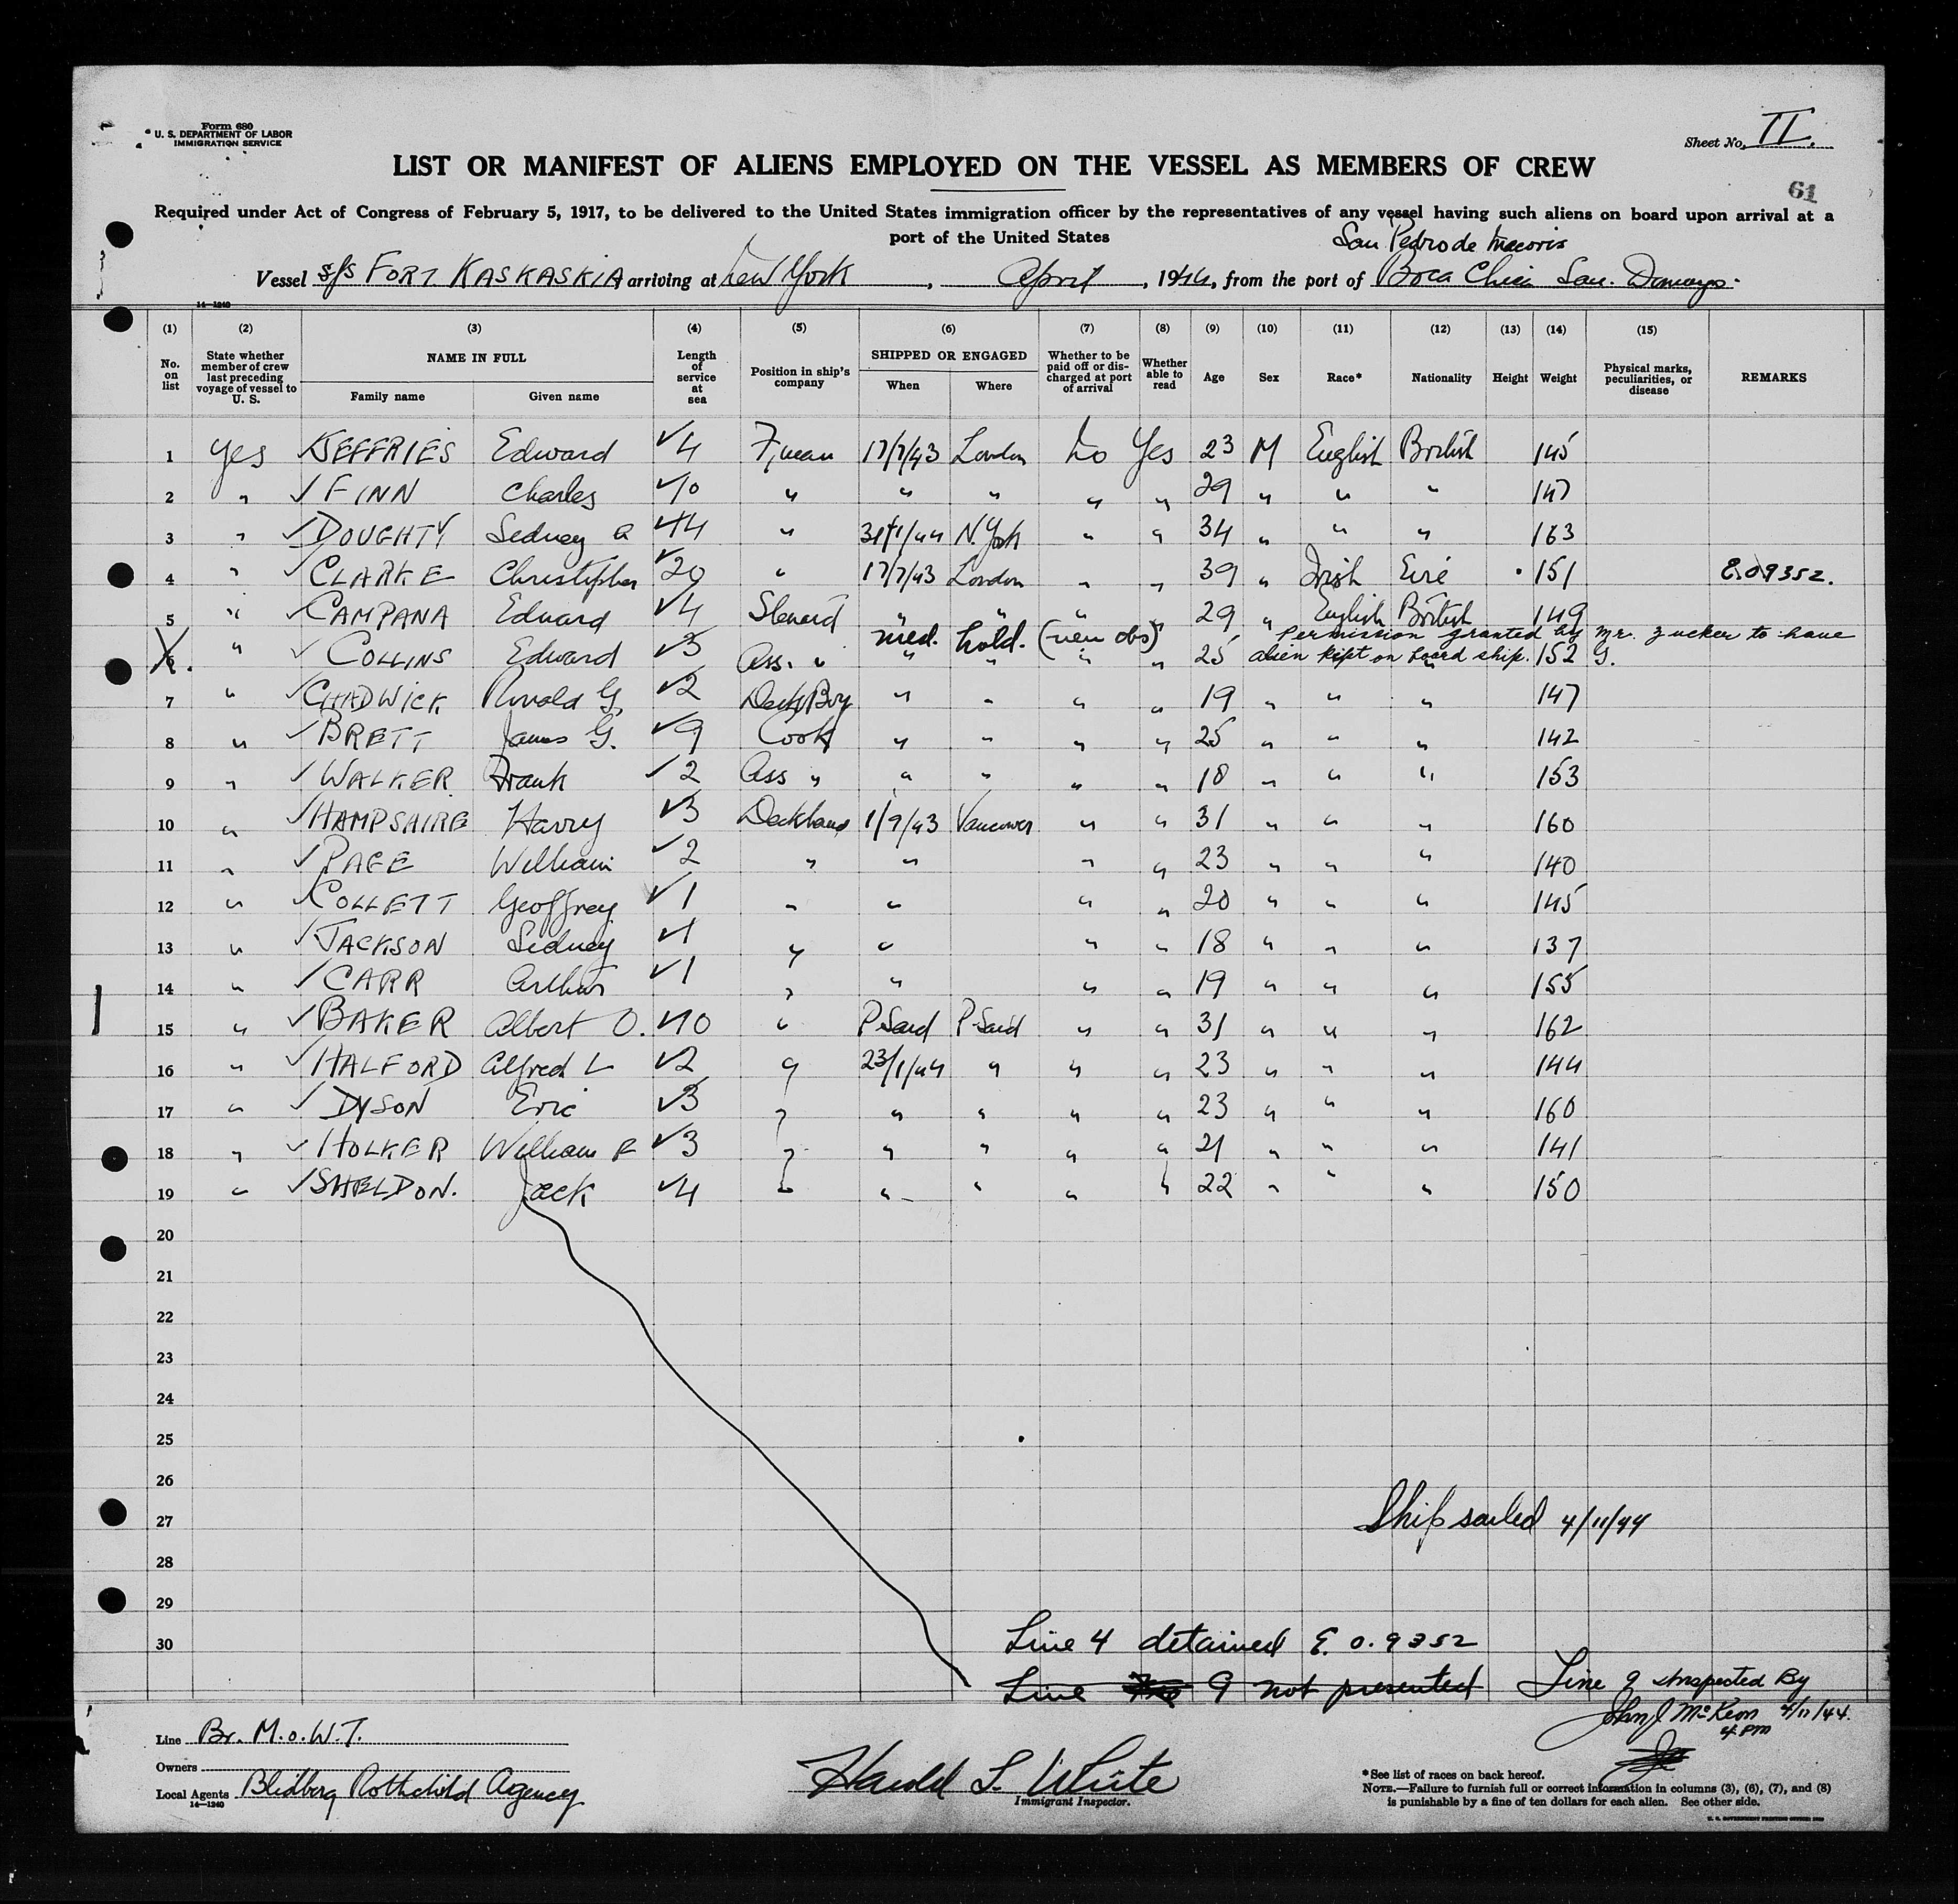 Form 680
U. S. DEPARTMENT OF LABOR
IMMIGRATION SERVICE
Sheet No. II.
LIST OR MANIFEST OF ALIENS EMPLOYED ON THE VESSEL AS MEMBERS OF CREW
61
Required under Act of Congress of February 5, 1917, to be delivered to the United States immigration officer by the representatives of any vessel having such aliens on board upon arrival at a
port of the United States
San Pedro de Macoris
Vessel s/s FORT KASKASKIA arriving at New York, April, 1944, from the port of Boca Chica San. Domingo.
14—1240
(1) (2) (3) (4) (5) (6) (7) (8) (9) (10) (11) (12) (13) (14) (15)
No. on list State whether member of crew last preceding voyage of vessel to U. S. NAME IN FULL Family name Given name Length of service at sea Position in ship's company SHIPPED OR ENGAGED When Where Whether to be paid off or discharged at port of arrival Whether able to read Age Sex Race* Nationality Height Weight Physical marks, peculiarities, or disease REMARKS
1 Yes ✓ JEFFRIES Edward ✓4 F,man 17/7/43 London No Yes 23 M English British 145
2 " ✓ FINN Charles ✓10 " " " " " 29 " " " 147
3 " ✓ DOUGHTY Sedney A ✓14 " 31/1/44 N. York " " 34 " " " 163
4 " ✓ CLARKE Christopher ✓20 " 17/7/43 London " " 39 " Irish Eire 151 E.O9352.
5 " ✓ CAMPANA Edward ✓4 Steward " " " " 29 " English British 149
med. hold. (ven obs) Permission granted by Mr. Zucker to have
X. 6 " ✓ COLLINS Edward ✓3 Ass. " " " " " 25 alien kept on board ship. " 152 G.
7 " ✓ CHADWICK Ronald G. ✓2 Deck Boy " " " " 19 " " " 147
8 " ✓ BRETT James G. ✓9 Cook " " " " 25 " " " 142
9 " ✓ WALKER Frank ✓2 Ass " " " " " 18 " " " 153
10 " ✓ HAMPSHIRE Harry ✓3 Deckhand 1/9/43 Vancouver " " 31 " " " 160
11 " ✓ PAGE William ✓2 " " " " 23 " " " 140
12 " ✓ COLLETT Geoffrey ✓1 " " " " 20 " " " 145
13 " ✓ JACKSON Sidney ✓1 " " " " 18 " " " 137
14 " ✓ CARR Arthur ✓1 " " " " 19 " " " 155
15 " ✓ BAKER Albert O. ✓10 " P. Said P. Said " " 31 " " " 162
16 " ✓ HALFORD Alfred L ✓2 " 23/1/44 " " " 23 " " " 144
17 " ✓ DYSON Eric ✓3 " " " " " 23 " " " 160
18 " ✓ HOLKER William F ✓3 " " " " " 21 " " " 141
19 " ✓ SHELDON. Jack ✓4 " " " " " 22 " " " 150
20
21
22
23
24
25
26
27 Ship sailed 4/11/44
28
29
30 Line 4 detained E.O.9352
Line 9 not presented
Line 9 Inspected By
John J McKeon 4/11/44.
4 PM
Line Br. M.o.W.T.
Owners
Local Agents Blidberg Rothchild Agency
14—1240
Harold L. White
Immigrant Inspector.
*See list of races on back hereof.
NOTE.—Failure to furnish full or correct information in columns (3), (6), (7), and (8)
is punishable by a fine of ten dollars for each alien. See other side.